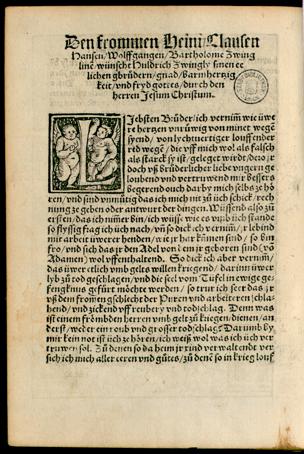 Den frommen Heini Clausen
Hansen, Wolffgangen, Bartholome Zwing
linē wünscht Huldrich Zwingly sinen ee
lichen gbrüdern, gnad, barmhertzig
keit, und fryd gottes, durch den
herren Jesum Christum.
Iebsten Brüder, ich vernim wie üwe
re hertzen vnrüwig von minet wegē
syend, von lychtuertiger louffender
red wegē, die vff mich wol als falsch
als starck
doch vß brüderlicher liebe
louben vnd vertruwend mir
begerend ouch darby mich selbs ze hö
ren, vnd sind vnmütig das ich mich nit zů üch schick, rech
nung ze geben oder antwurt der dingen. Wüssend also zů
ersten, das ich nimmer bin, ich wüsse wie es vmb üch stande
so flyssig frag ich üch nach, vñ so dick ich vernim, ir lebind
mit arbeit üwerer henden, wie ir har kummen sind, so bin
fro, vnd sich das ir den Adel von dem ir geboren sind (vō
Adamen) wol vffenthaltend. So dick ich aber vernim,
das üwer etlich vmb gelts willen kriegend, darinn üwer
lyb zů tod geschlagen, vnd die seel vom Tüfel in ewige ge=
fengknus gefürt möchte werden, so trur ich seer das ir
vß dem frommen gschlecht der Puren vnd arbeiteren schla=
hend, vnd zickend vff roubery vnd todschlag. Denn was
ist einem frömbden herren vmb gelt zů kriegen, dienen, an
derst, weder ein roub vnd grosser todschlag? Darumb by
mir kein not ist üch ze hören, ich weiß wol was ich üch ver
truwen sol. Zů denen so da heim ir rind verwaltend
sich ich mich aller eeren vnd gůtes, zů denē so in krieg louf